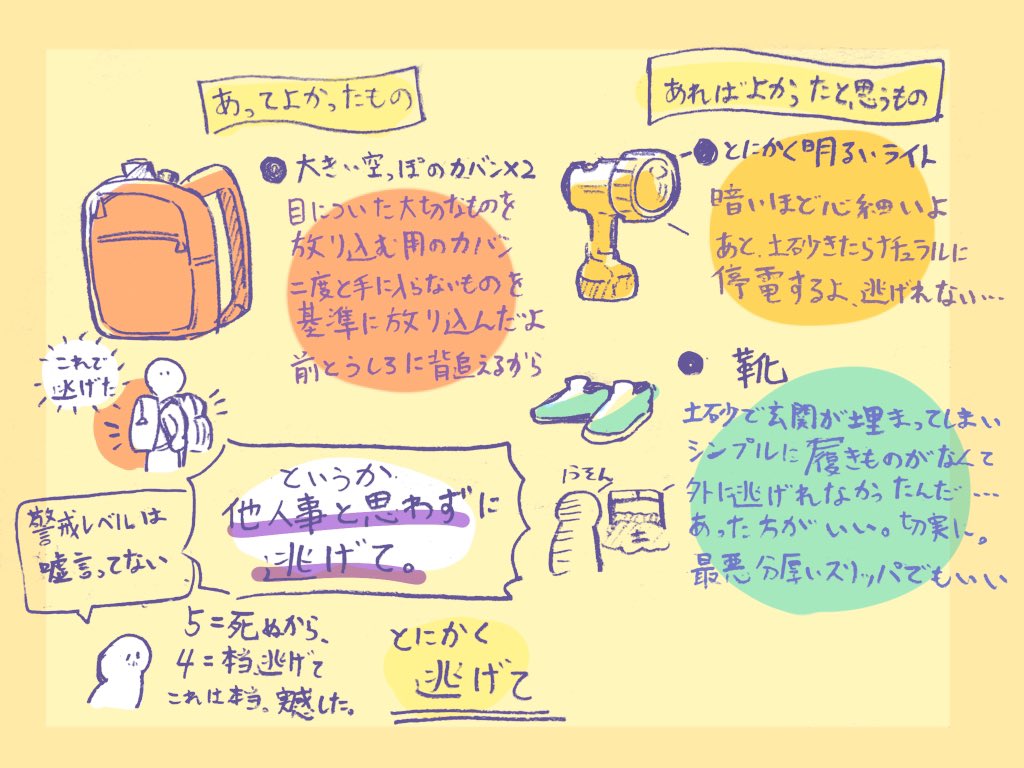 あってよかったもの
●大きい空っぽのカバン×2
目についた大切なものを
放り込む用のカバン
二度と手に入らないものを
基準に放り込んだよ
前とうしろに背追えるから
これで
逃げた
あればよかったと思うもの
●とにかく明るいライト
暗いほど心細いよ
あと、土砂きたらナチュラルに
停電するよ、逃げれない…
●靴
土砂で玄関が埋まってしまい
シンプルに履きものがなくて
外に逃げれなかったんだ…
あった方がいい。切実に。
最悪分厚いスリッパでもいい
うそん
土
というか
他人事と思わずに
逃げて。
警戒レベルは
嘘言ってない
5=死ぬから、
4=本当逃げて
これは本当。実感した。
とにかく
逃げて